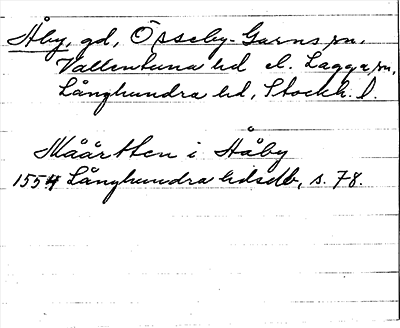 Åby, gd, Össeby-Garns sn,
Vallentuna hd el. Lagga sn,
Långhundra hd, Stockh. l.
Måårtten i Håby
1554 Långhundra hdsdb, s. 78.